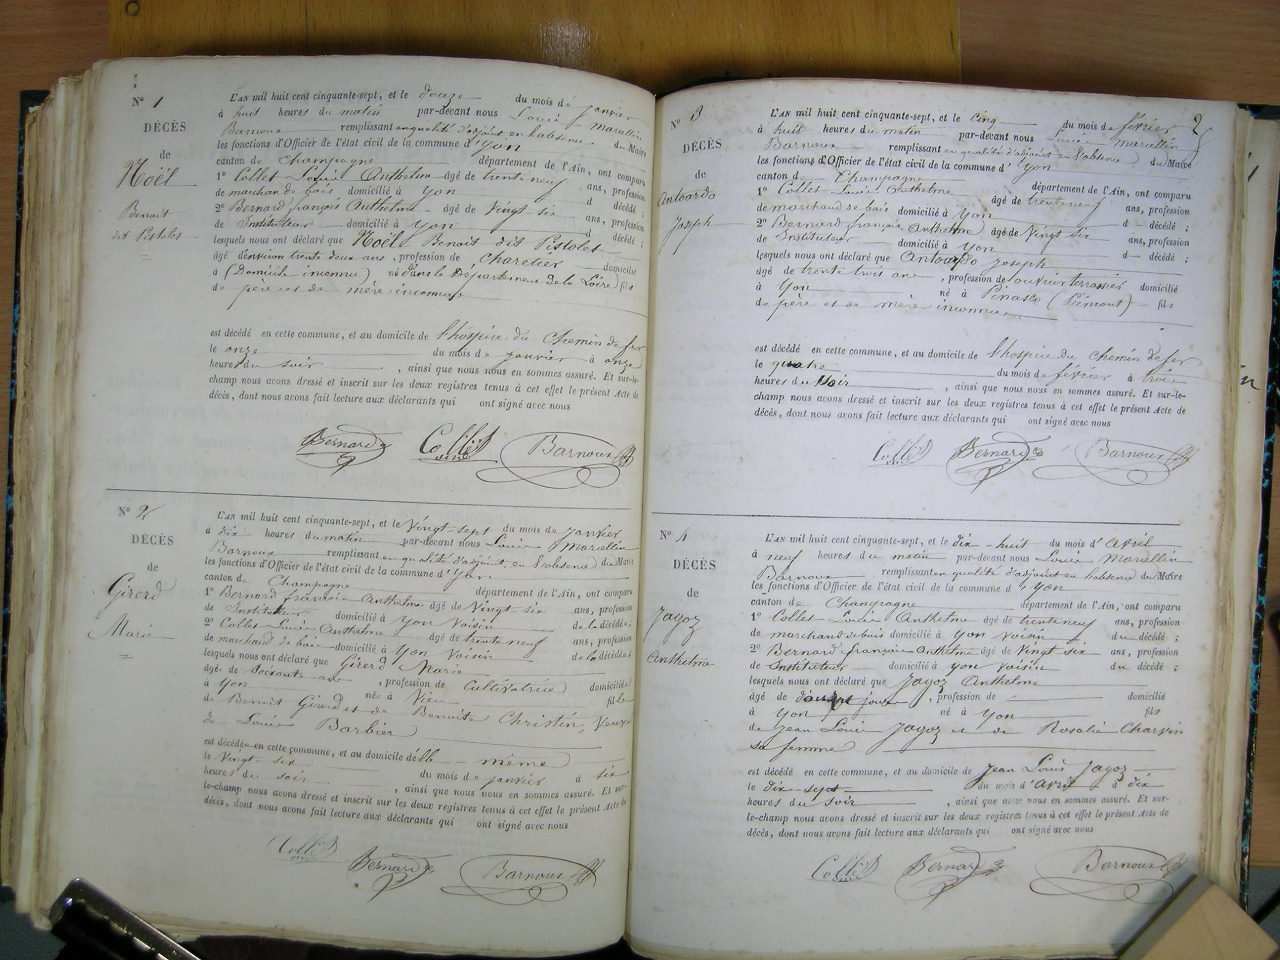 N° 1
DÉCÈS
de
Noël
Benoit
dit Pistolet
L'AN mil huit cent cinquante-sept, et le douze du mois de janvier
à huit heures du matin par-devant nous Louis Marcellin
Barnoux remplissant en qualité d'adjoint en l'absence du Maire
les fonctions d'Officier de l'état civil de la commune d'Yon
canton de Champagne département de l'Ain, ont comparu
1° Collet Louis Anthelme âgé de trente neuf ans, profession
de marchand de bois domicilié à Yon d décédé ;
2° Bernard françois Anthelme âgé de Vingt six ans, profession
de Instituteur domicilié à Yon d décédé ;
lesquels nous ont déclaré que Noël Benoit dit Pistolet
âgé d'environ trente deux ans, profession de Charetier domicilié
à (Domicile inconnu) né dans le Département de la Loire fils
de père et de mère inconnus
est décédé en cette commune, et au domicile de l'hospice du Chemin de fer
le onze du mois de janvier à onze
heures du soir, ainsi que nous nous en sommes assuré. Et sur-le-
champ nous avons dressé et inscrit sur les deux registres tenus à cet effet le présent Acte de
décès, dont nous avons fait lecture aux déclarants qui ont signé avec nous
Bernard Collet Barnoux
N° 2
DÉCÈS
de
Girerd
Marie
L'AN mil huit cent cinquante-sept, et le Vingt-sept du mois de janvier
à dix heures du matin par-devant nous Louis Marcellin
Barnoux remplissant en qualité d'adjoint en l'absence du Maire
les fonctions d'Officier de l'état civil de la commune d'Yon
canton de Champagne département de l'Ain, ont comparu
1° Bernard françois Anthelme âgé de Vingt six ans, profession
de Instituteur domicilié à Yon Voisin de la décédée ;
2° Collet Louis Anthelme âgé de trente neuf ans, profession
de marchand de bois domicilié à Yon Voisin de la décédée ;
lesquels nous ont déclaré que Girerd Marie
âgée de Soixante ans, profession de Cultivatrice domiciliée
à Yon née à Vieu fille
de Benoit Girerd et de Benoite Christin, Veuve
de Louis Barbier
est décédée en cette commune, et au domicile d'elle même
le Vingt-six du mois de janvier à six
heures du soir, ainsi que nous nous en sommes assuré. Et sur-
le-champ nous avons dressé et inscrit sur les deux registres tenus à cet effet le présent Acte de
décès, dont nous avons fait lecture aux déclarants qui ont signé avec nous
Collet Bernard Barnoux
2
N° 3
DÉCÈS
de
Antoardo
Joseph
L'AN mil huit cent cinquante-sept, et le cinq du mois de février
à huit heures du matin par-devant nous Louis Marcellin
Barnoux remplissant en qualité d'adjoint en l'absence du Maire
les fonctions d'Officier de l'état civil de la commune d'Yon
canton de Champagne département de l'Ain, ont comparu
1° Collet Louis Anthelme âgé de trente neuf ans, profession
de marchand de bois domicilié à Yon d décédé ;
2° Bernard françois Anthelme âgé de Vingt six ans, profession
de Instituteur domicilié à Yon d décédé ;
lesquels nous ont déclaré que Antoardo Joseph
âgé de trente trois ans, profession de ouvrier terrassier domicilié
à Yon né à (Piémont) fils
de père et de mère inconnus
est décédé en cette commune, et au domicile de l'hospice du Chemin de fer
le quatre du mois de février à trois
heures du soir, ainsi que nous nous en sommes assuré. Et sur-le-
champ nous avons dressé et inscrit sur les deux registres tenus à cet effet le présent Acte de
décès, dont nous avons fait lecture aux déclarants qui ont signé avec nous
Collet Bernard Barnoux
N° 4
DÉCÈS
de
Jagoz
Anthelme
L'AN mil huit cent cinquante-sept, et le dix-huit du mois d'avril
à neuf heures du matin par-devant nous Louis Marcellin
Barnoux remplissant en qualité d'adjoint en l'absence du Maire
les fonctions d'Officier de l'état civil de la commune d'Yon
canton de Champagne département de l'Ain, ont comparu
1° Collet Louis Anthelme âgé de trente neuf ans, profession
de marchand de bois domicilié à Yon Voisin du décédé ;
2° Bernard françois Anthelme âgé de Vingt six ans, profession
de Instituteur domicilié à Yon Voisin du décédé ;
lesquels nous ont déclaré que Jagoz Anthelme
âgé de jours, profession de domicilié
à Yon né à Yon fils
de Jean Louis Jagoz et de Rosalie Charvin
sa femme
est décédé en cette commune, et au domicile de Jean Louis Jagoz
le dix sept du mois d'avril à dix
heures du soir, ainsi que nous nous en sommes assuré. Et sur-
le-champ nous avons dressé et inscrit sur les deux registres tenus à cet effet le présent Acte de
décès, dont nous avons fait lecture aux déclarants qui ont signé avec nous
Collet Bernard Barnoux